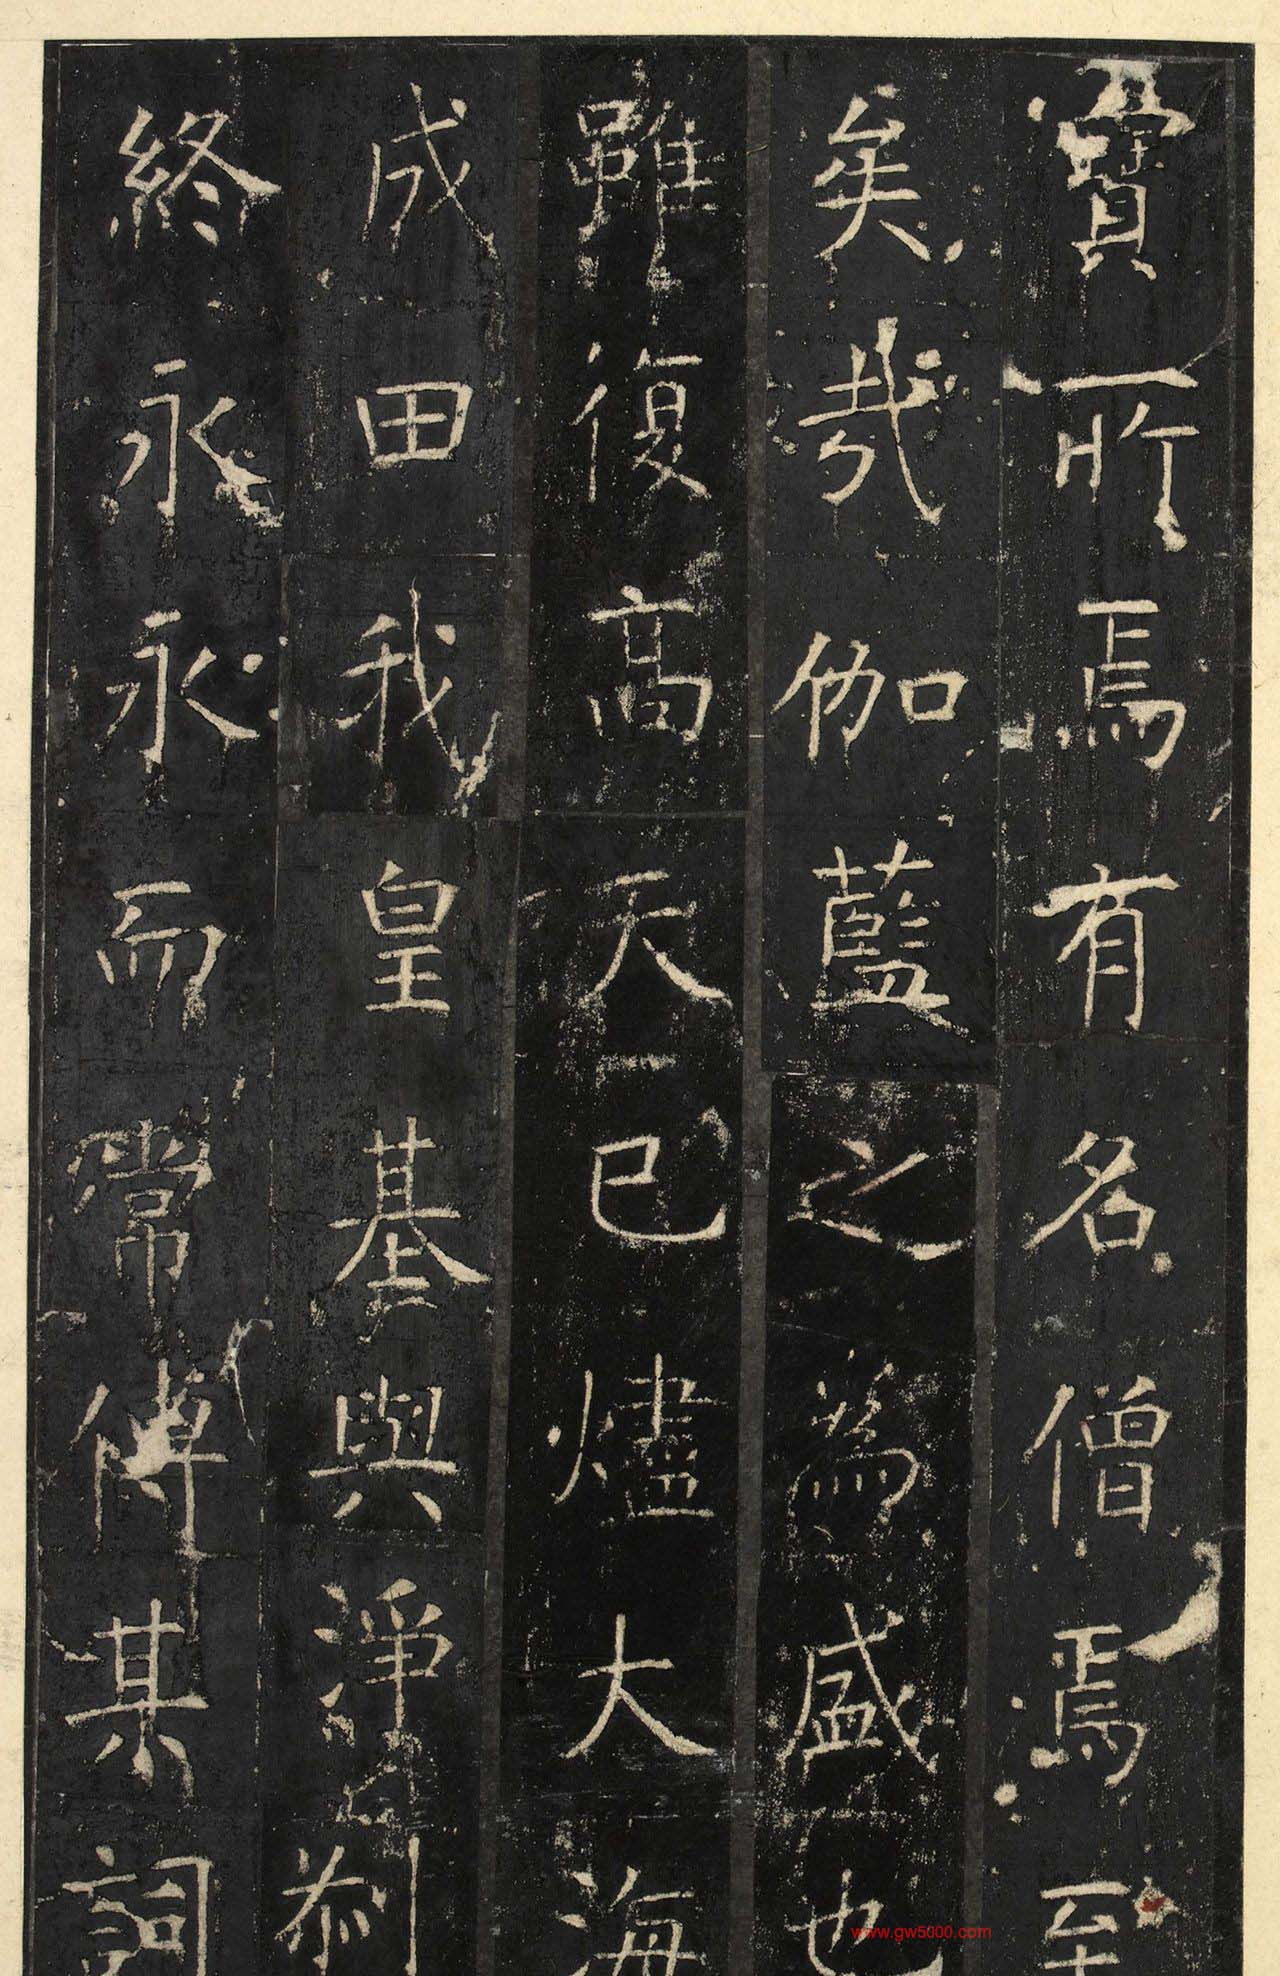 寶所焉有名僧焉至
矣哉伽藍之為盛也
雖復高天已燼大海
成田我皇基與淨剎
終永永而常傳其詞
www.gw5000.com